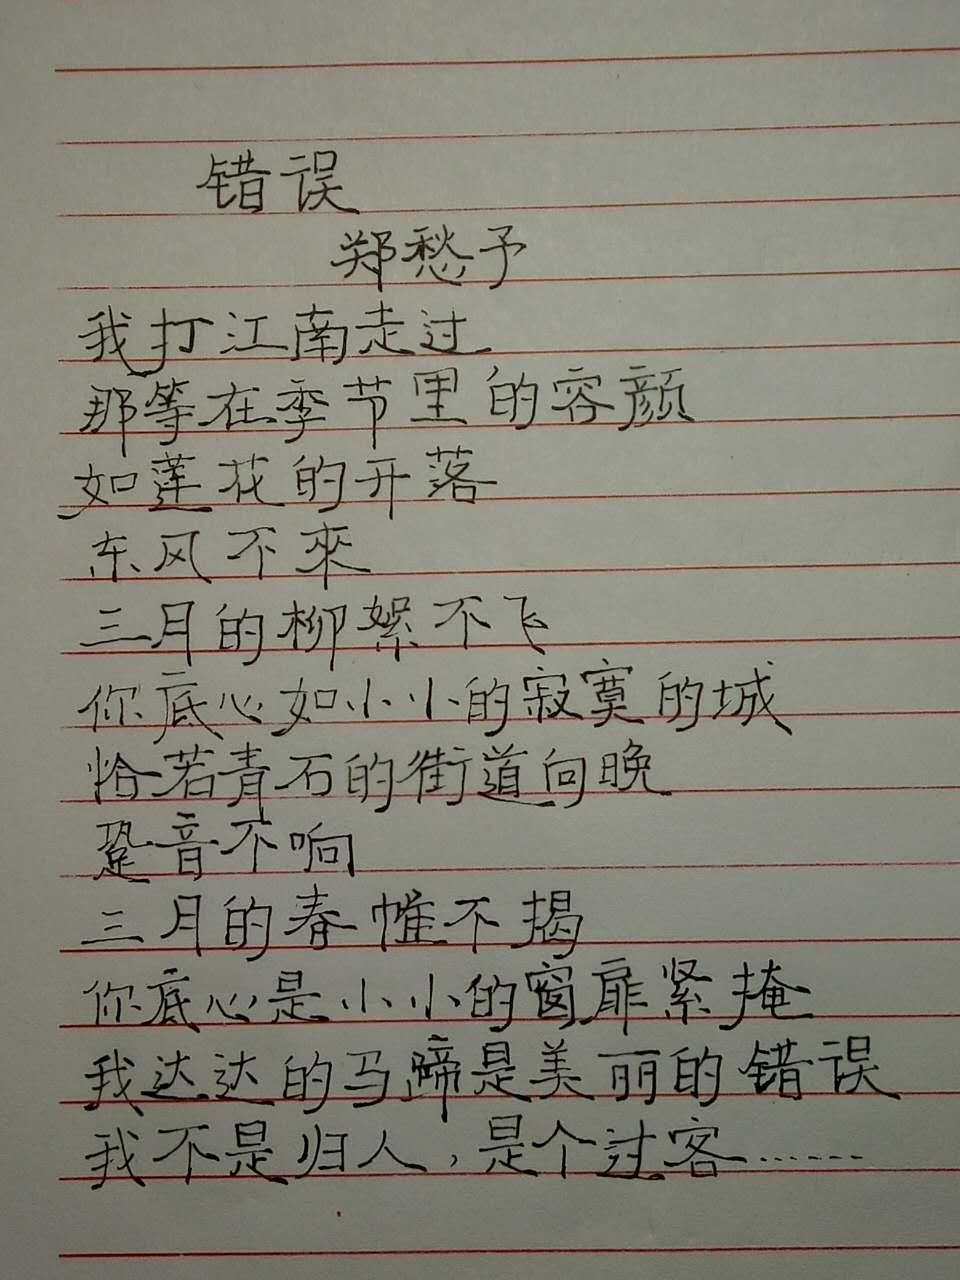 错误
郑愁予
我打江南走过
那等在季节里的容颜
如莲花的开落
东风不來
三月的柳絮不飞
你底心如小小的寂寞的城
恰若青石的街道向晚
跫音不响
三月的春帷不揭
你底心是小小的窗扉紧掩
我达达的马蹄是美丽的错误
我不是归人,是个过客……